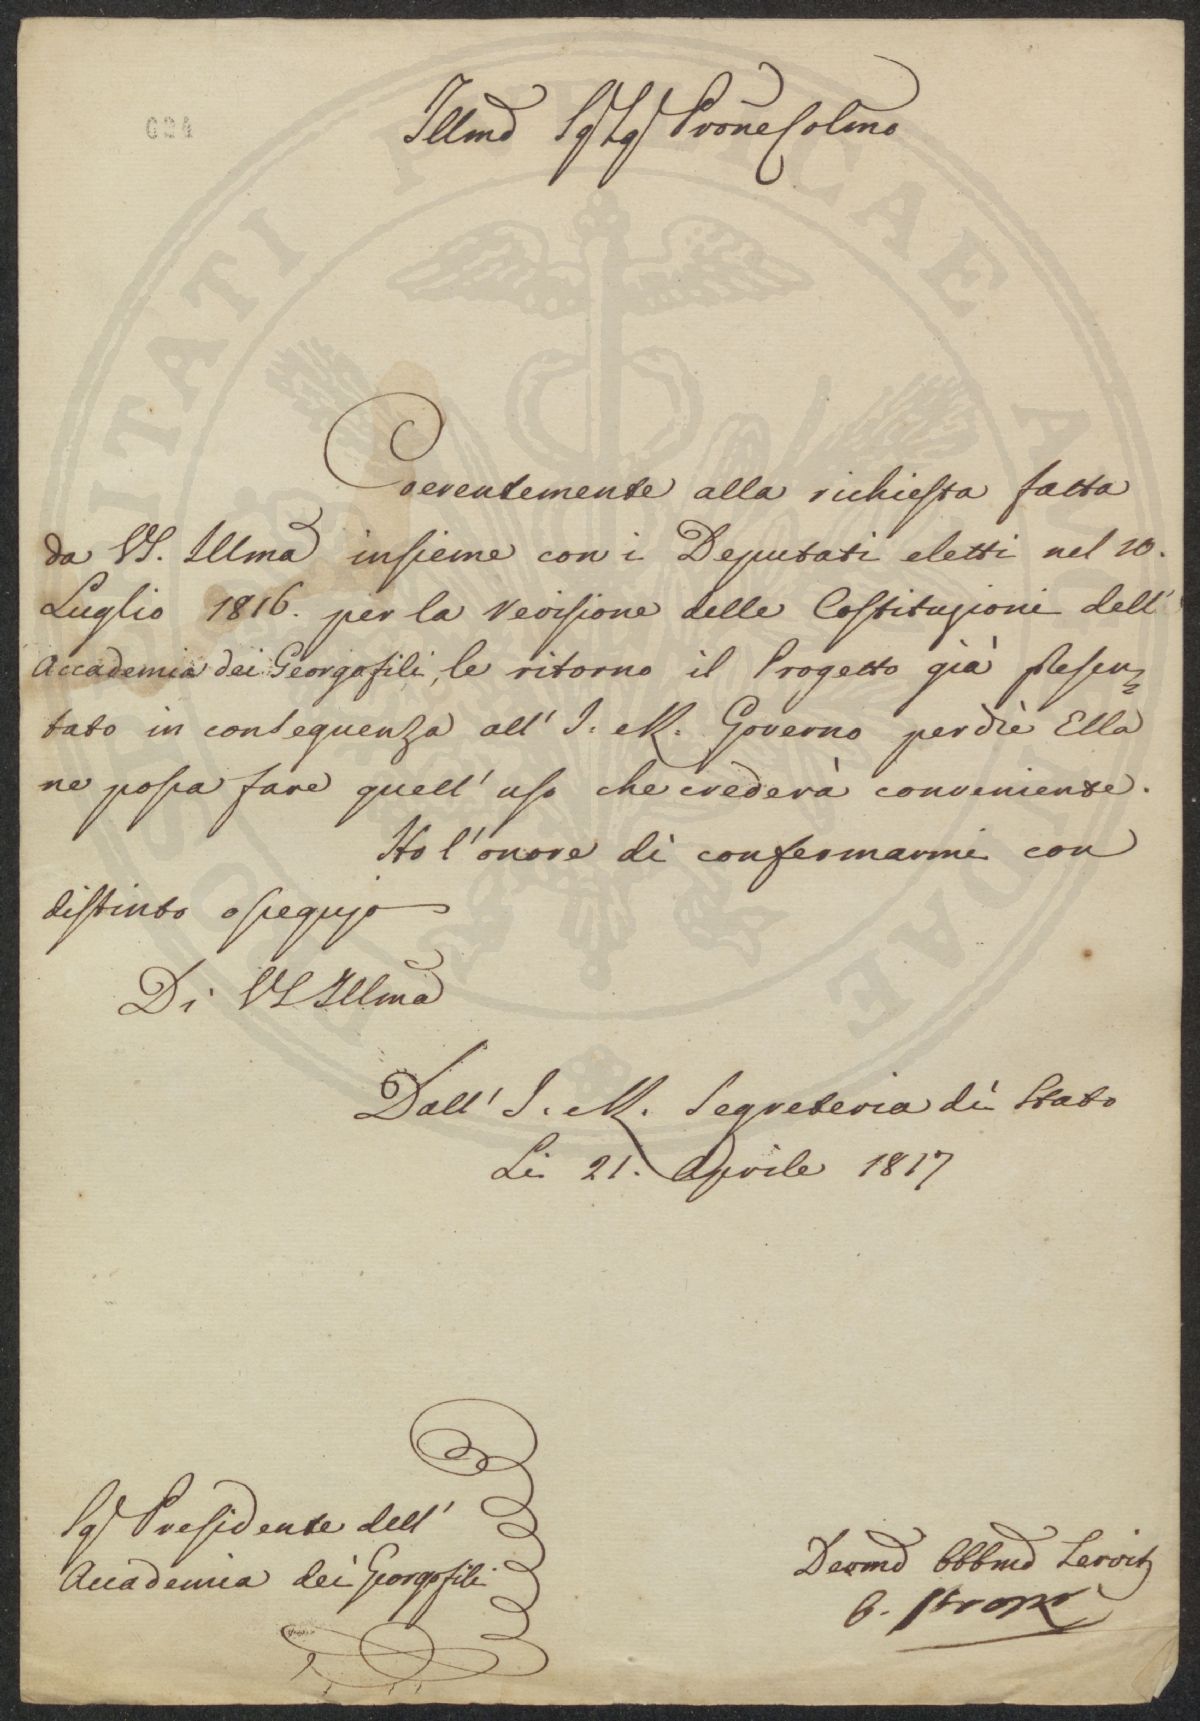 024
Illmo Sig Sig Prone Colmo
Coerentemente alla richiesta fatta
da VS. Illma insieme con i Deputati eletti nel 10.
Luglio 1816. per la revisione delle Costituzioni dell'
Accademia dei Georgofili, le ritorno il Progetto già presen=
tato in conseguenza all' I. e R. Governo perchè Ella
ne possa fare quell' uso che crederà conveniente.
Ho l'onore di confermarmi con
distinto ossequio
Di VS Illma
Dall' I. e R. Segreteria di Stato
Li 21. Aprile 1817
Sig Presidente dell'
Accademia dei Georgofili
Devmo Obbmo Servit